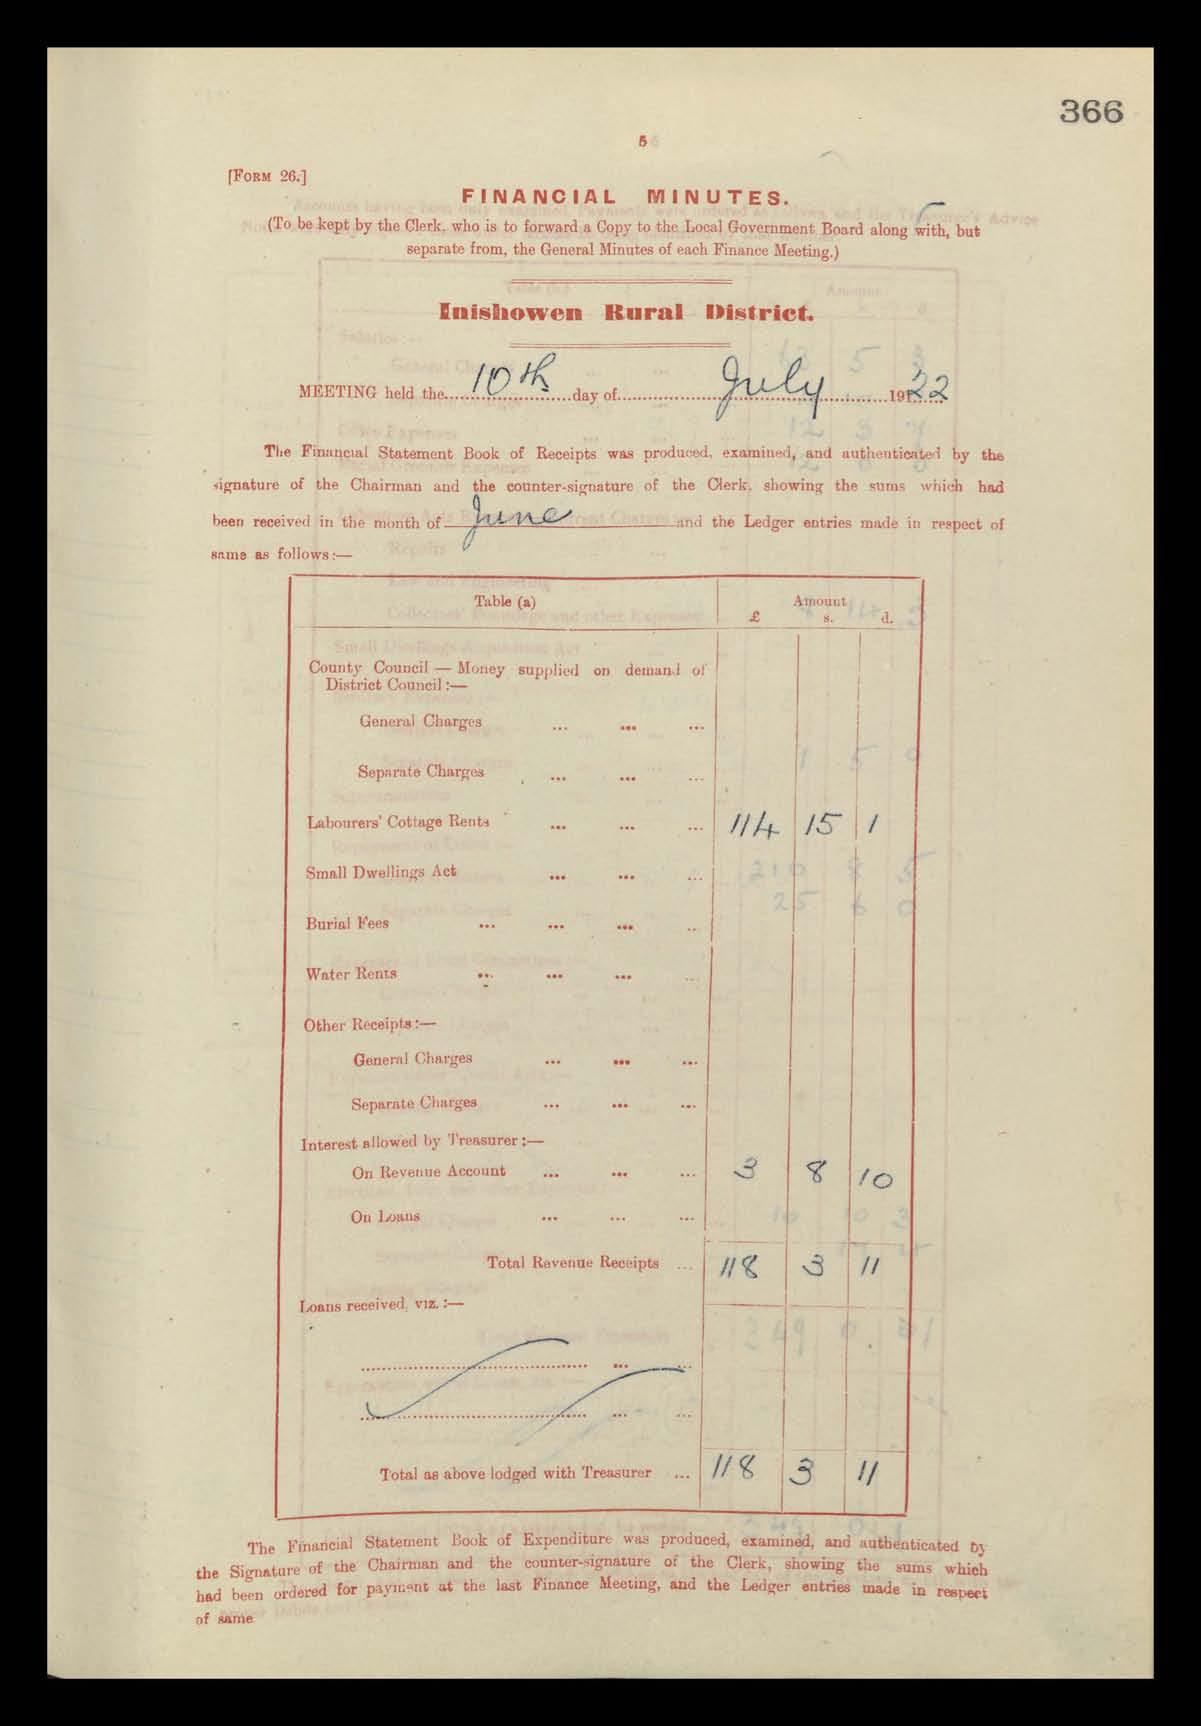 366
5
[FORM 26.]
FINANCIAL MINUTES.
(To be kept by the Clerk, who is to forward a Copy to the Local Government Board along with, but
separate from, the General Minutes of each Finance Meeting.)
Inishowen Rural District.
MEETING held the 10th day of July 1922
The Financial Statement Book of Receipts was produced, examined, and authenticated by the
signature of the Chairman and the counter-signature of the Clerk, showing the sums which had
been received in the month of June and the Ledger entries made in respect of
same as follows:—
Table (a) Amount
£ s. d.
County Council — Money supplied on demand of
District Council:—
General Charges ... ... ...
Separate Charges ... ... ...
Labourers' Cottage Rents ... ... ... 114 15 1
Small Dwellings Act ... ... ...
Burial Fees ... ... ... ...
Water Rents ... ... ... ...
Other Receipts:—
General Charges ... ... ...
Separate Charges ... ... ...
Interest allowed by Treasurer:—
On Revenue Account ... ... ... 3 8 10
On Loans ... ... ...
Total Revenue Receipts ... 118 3 11
Loans received, viz.:—
Total as above lodged with Treasurer ... 118 3 11
The Financial Statement Book of Expenditure was produced, examined, and authenticated by
the Signature of the Chairman and the counter-signature of the Clerk, showing the sums which
had been ordered for payment at the last Finance Meeting, and the Ledger entries made in respect
of same